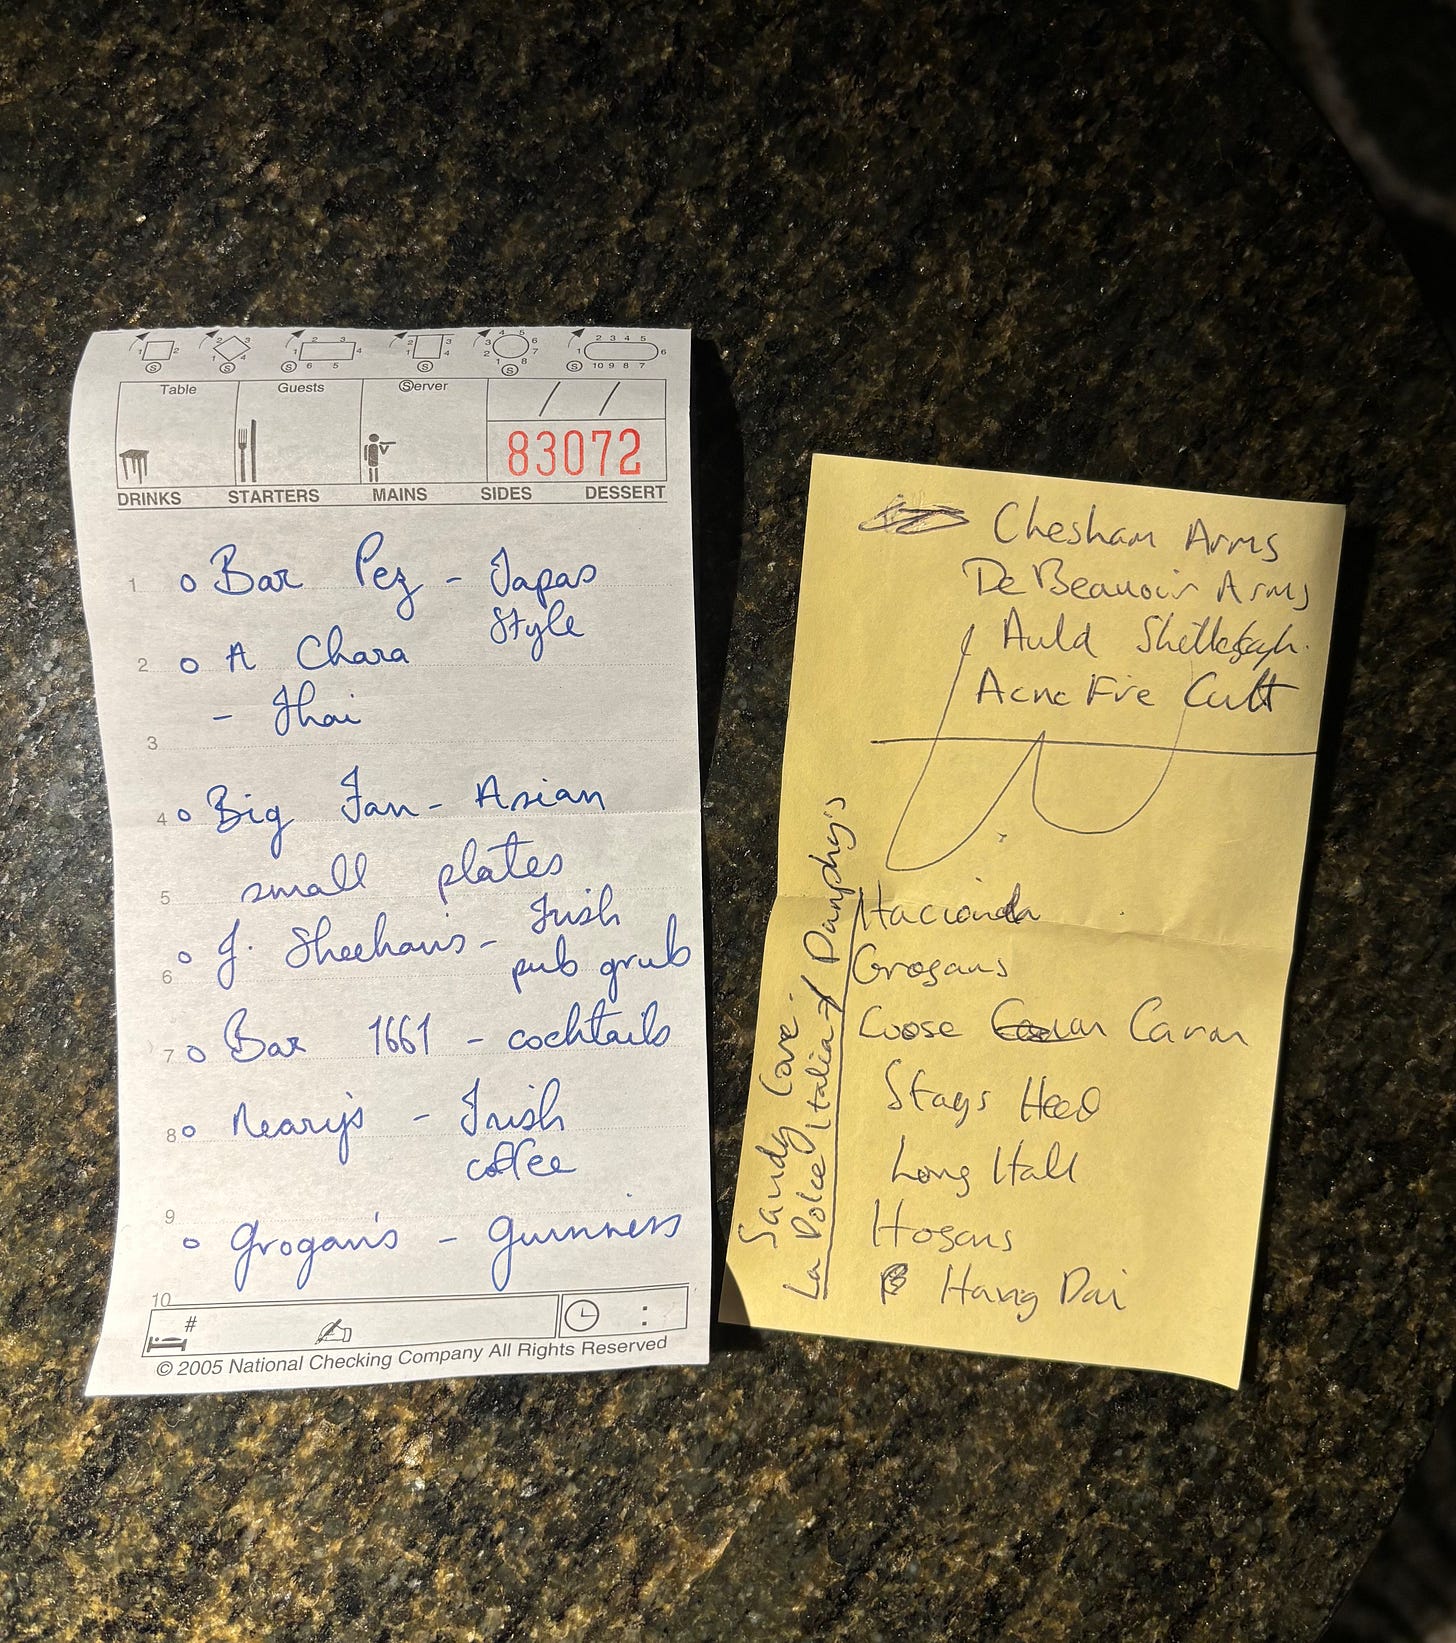 Table Guests Server
83072
DRINKS STARTERS MAINS SIDES DESSERT
1 Bar Pez - Tapas
Style
2 A Chara
- Thai
3
4 Big Fan - Asian
small plates
5
J. Sheehan's - Irish
6 pub grub
7 Bar 1661 - cocktails
8 Neary's - Irish
coffee
9
Grogan's - Guinness
10
# :
© 2005 National Checking Company All Rights Reserved
Chesham Arms
De Beauvoir Arms
Auld
Acne Fire Cult
Hacienda
Grogans
Loose Canon
Stags Head
Long Hall
Hogans
Hang Dai
Sandy Cove
La Dolce Italia / Dunphy's